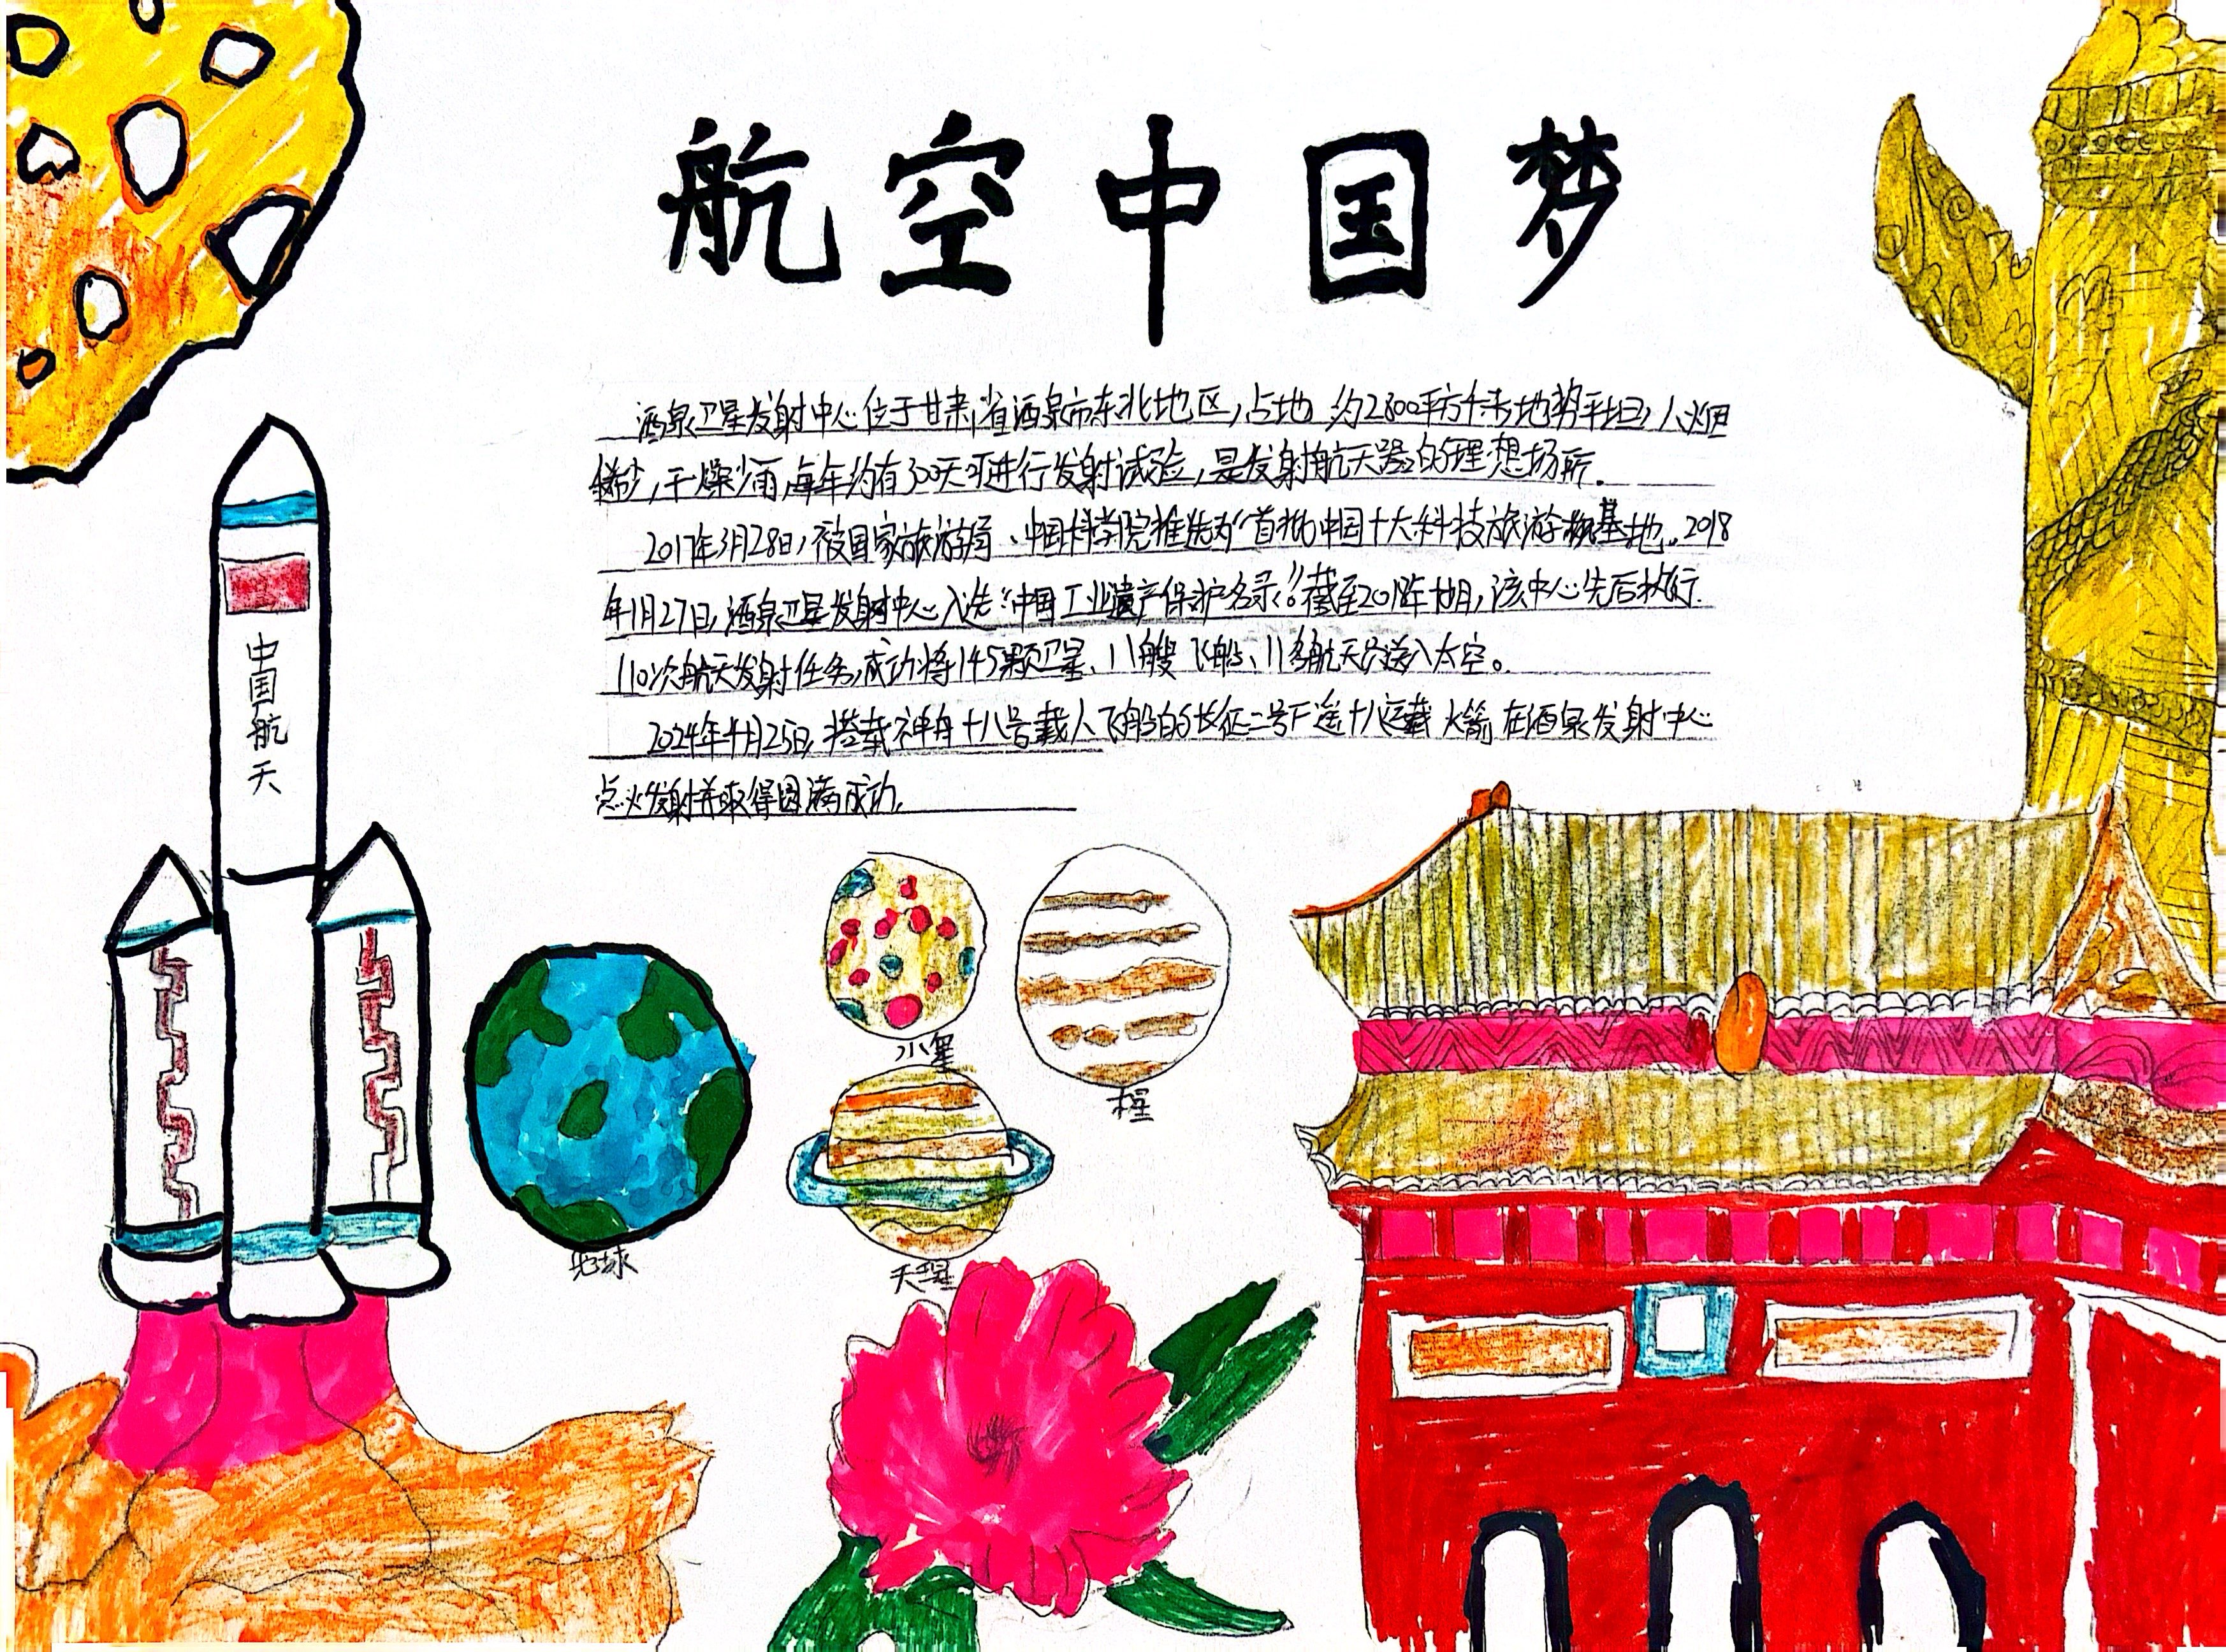 航空中国梦
酒泉卫星发射中心位于甘肃省酒泉市东北地区,占地约2800平方千米,地势平坦,人烟
稀少,干燥少雨,每年约有300天可进行发射试验,是发射航天器的理想场所。
2017年3月28日,被国家旅游局、中国科学院推选为“首批中国十大科技旅游基地。2018
年1月27日,酒泉卫星发射中心入选“中国工业遗产保护名录”。截至2018年10月,该中心先后执行
110次航天发射任务,成功将145颗卫星、11艘飞船、11名航天员送入太空。
2024年4月25日,搭载神舟十八号载人飞船的长征二号F遥十八运载火箭在酒泉发射中心
点火发射并取得圆满成功。
中国航天
小星
木星
地球
天星